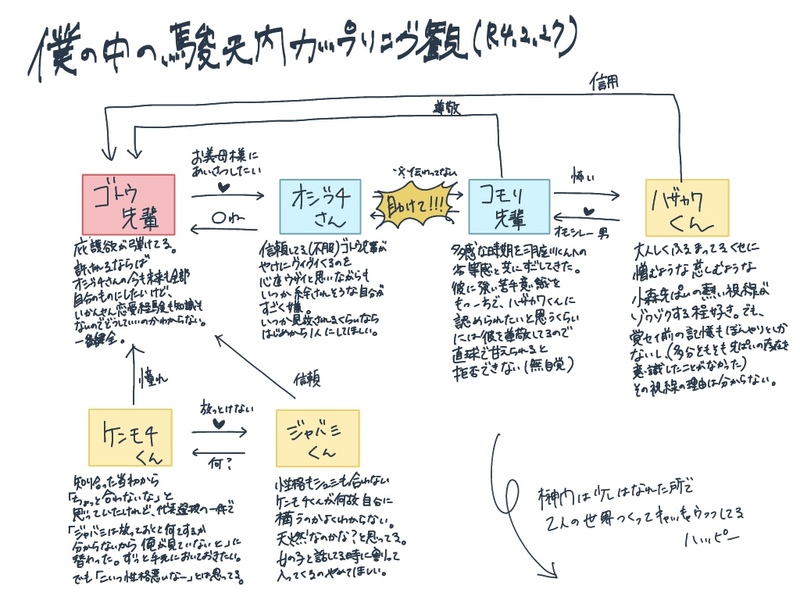 僕の中の、駿天内カップリング観(R4.2.27)
信用
尊敬
お義母様に
あいさつしたい
〇ね
※伝わってない
助けて!!!
怖い
オモシレー男
ゴトウ
先輩
オジラチ
さん
コモリ
先輩
ハザカワ
くん
庇護欲が弾けてる。
許されるならば
オジラチさんの今も未来も全部
自分のものにしたいけど、
いかんせん恋愛経験も知識も
ないのでどうしていいのかわからない。
一番健全。
信頼してる(不服)ゴトウ先輩が
やけにグイグイくるのを
心底ウザイと思いながらも
いつか絆されそうな自分が
すごく嫌。
いつか見放されるくらいなら
はじめから1人にしてほしい。
多感な時期を
劣等感と共にすごしてきた。
彼に強い苦手意識を
もっつつ、ハザカワくんに
認められたいと思うくらい
には彼を尊敬してるので
直球で甘えられると
拒否できない(無自覚)
大人しくふるまってるくせに
憎むような慈しむような
小森先ぱいの熱い視線が
ゾクゾクする程好き。でも、
覚セイ前の記憶もぼんやりとしか
ないし、(多分もともと先ぱいの存在を
意識したことがなかった)
その視線の理由は分からない。
憧れ
信頼
ケンモチ
くん
放っとけない
何?
ジャバミ
くん
知り合った当初から
「ちょっと合わないな」と
思っていたけれど、代表選抜の一件で
「ジャバミは放っておくと何するか
分からないから俺が見ていないと」に
替わった。ずっと手元においておきたい。
でも「こいつ性格悪いなー」とは思ってる。
性格もシュミも合わない
ケンモチくんが何故自分に
構うのかよくわからない。
天然なのかな?と思ってる。
女の子と話してる時に割って
入ってくるのやめてほしい。
榊内は少しはなれた所で
2人の世界つくってキャッキャウフフしてる
ハッピー